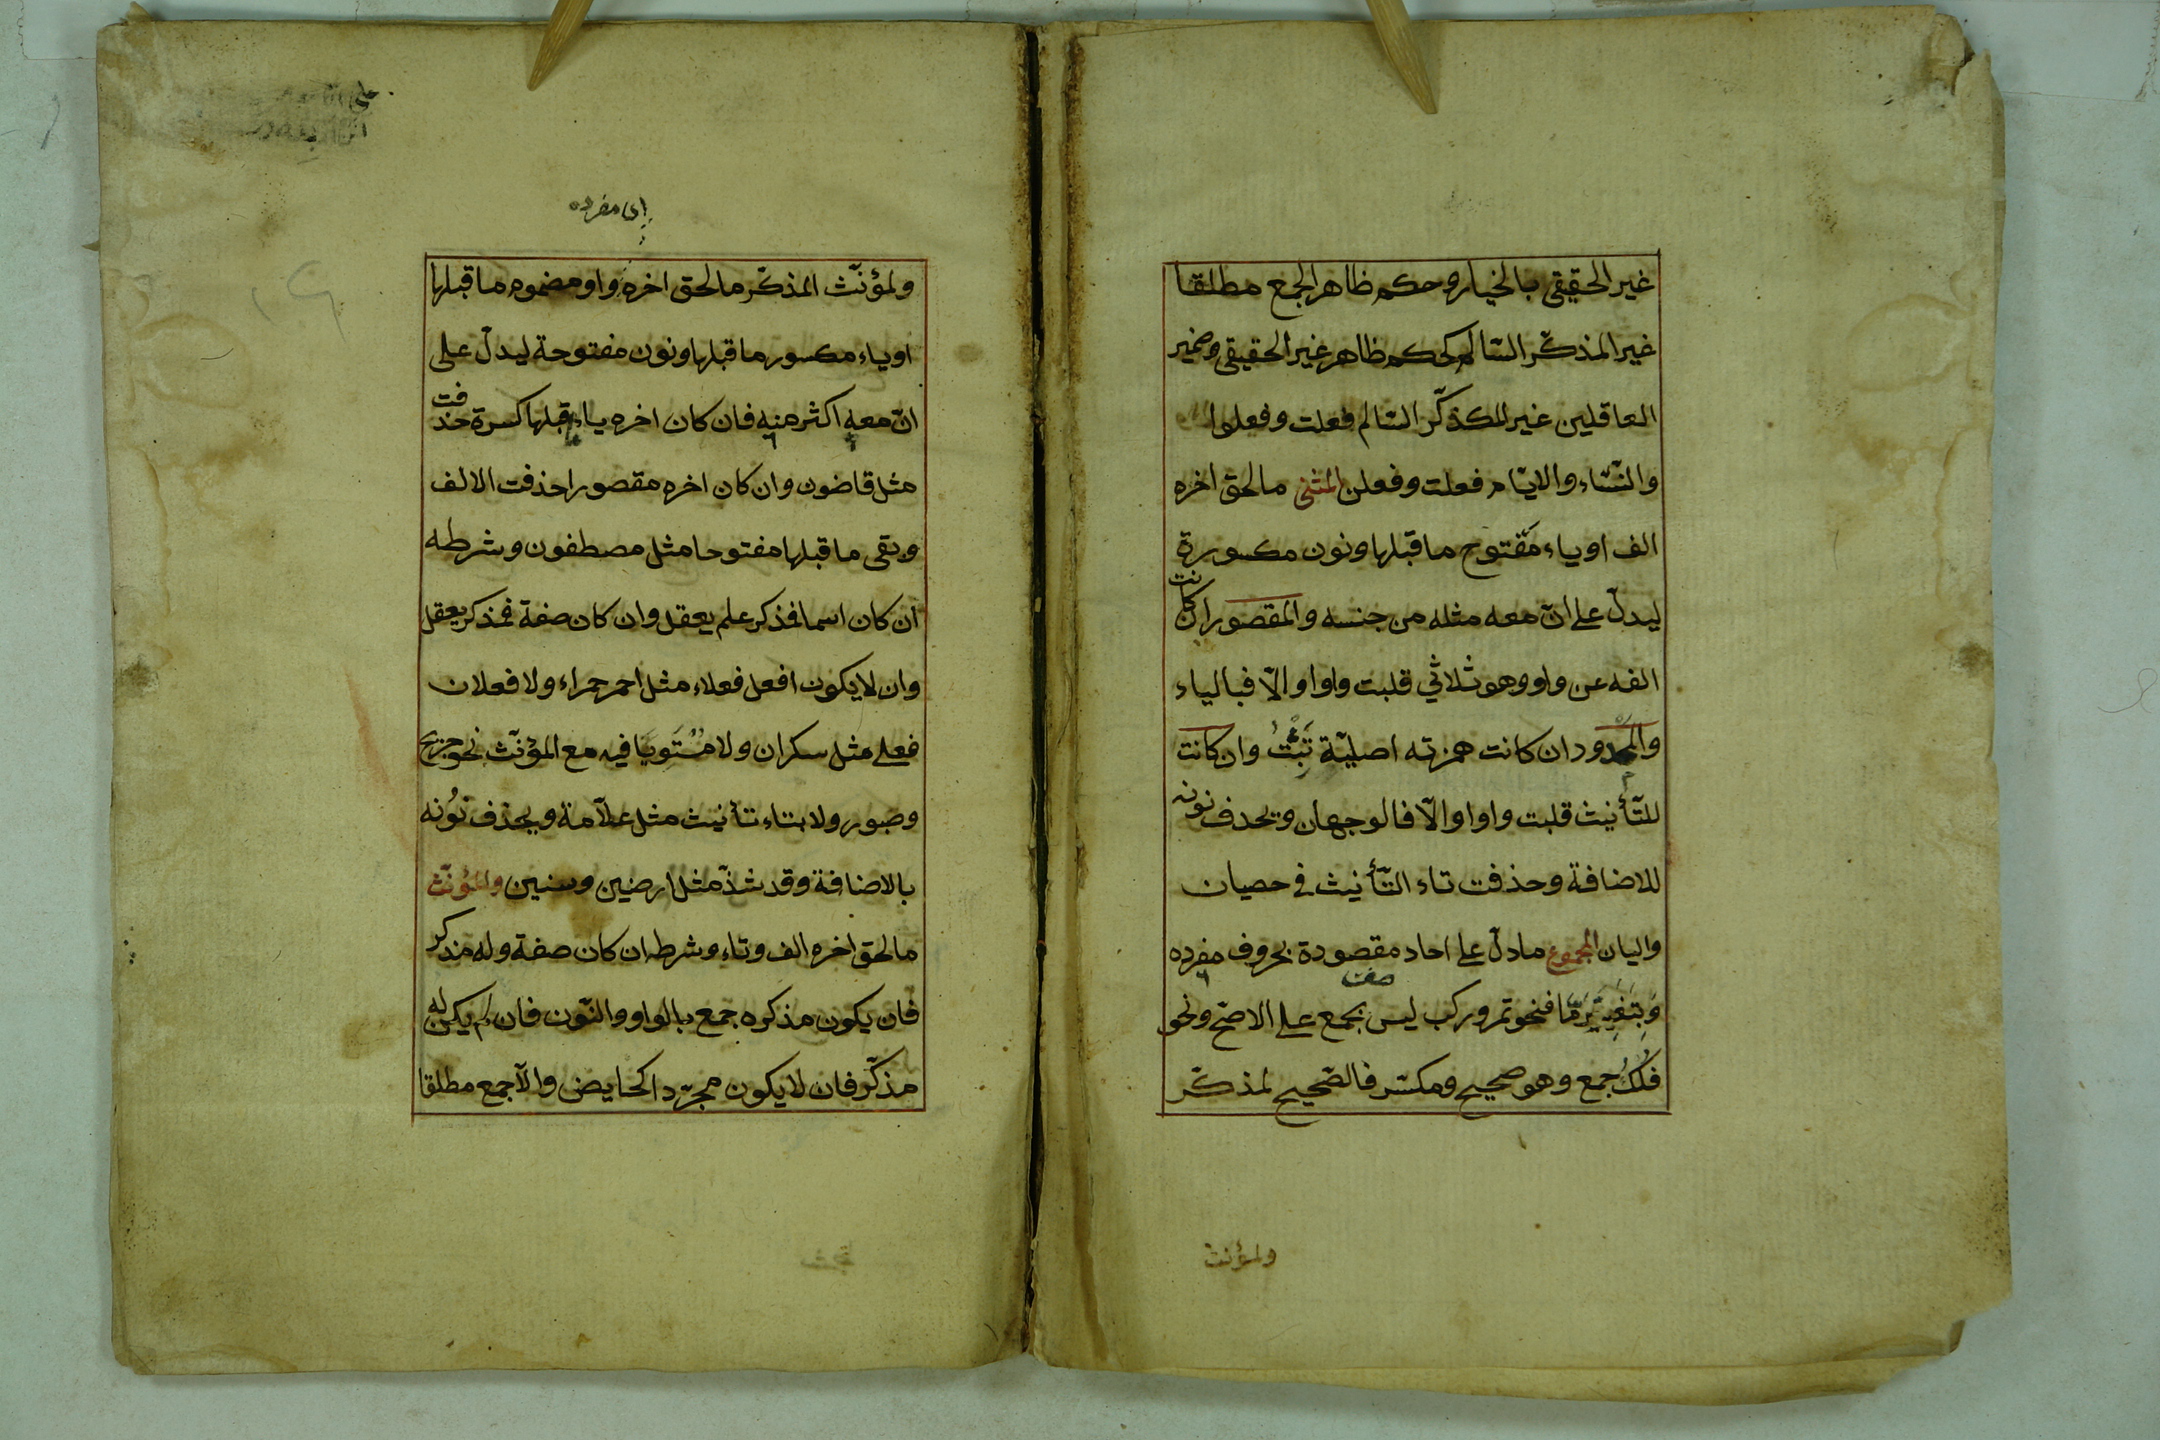 غير الحقيقي بالخيار وحكم ظاهر الجمع مطلقا
غير المذكّر السّالم كحكم ظاهر غير الحقيقي وضمير
العاقلين غير المذكّر السّالم فعلت وفعلوا
والنّساء والايّام فعلت وفعلن المثنى مالحق اخره
الف او ياء مفتوح ماقبلها ونون مكسورة
ليدلّ على انّ معه مثله من جنسه والمقصور ان كانت
الفه عن واو وهو ثلاثي قلبت واوا والّا فبالياء
والممدود ان كانت همزته اصليّة تثبت وان كانت
للتّأنيث قلبت واوا والّا فالوجهان ويحذف نونه
للاضافة وحذفت تاء التّأنيث في خصيان
واليان المجموع مادلّ على احاد مقصودة بحروف مفرده
صفت
وبتغيير مّا فنحو تمر وركب ليس بجمع على الاصحّ ونحو
فلك جمع وهو صحيح ومكسّر فالصّحيح لمذكّر
ولمؤنث
اى مفرده
ولمؤنّث المذكّر مالحق اخره واو مضموم ماقبلها
او ياء مكسور ماقبلها ونون مفتوحة ليدلّ على
انّ معه اكثر منه فان كان اخره ياء قبلها كسرة حذفت
مثل قاضون وان كان اخره مقصورا حذفت الالف
وبقى ماقبلها مفتوحا مثل مصطفون وشرطه
ان كان اسما فمذكر علم يعقل وان كان صفة فمذكر يعقل
وان لايكون افعل فعلاء مثل احمر حمراء ولا فعلان
فعلى مثل سكران ولا مُسْتَوِيًا فيه مع المؤنّث نحو جريح
وصبور ولا بتاء تأنيث مثل علّامة ويحذف نُونه
بالاضافة وقد شذّ مثل ارضين وسنين والمؤنّث
مالحق اخره الف وتاء وشرطه ان كان صفة وله مذكر
فان يكون مذكره جمع بالواو والنّون فان لم يكن له
مذكّر فان لايكون مجرّدا كحايض والّا جمع مطلقا